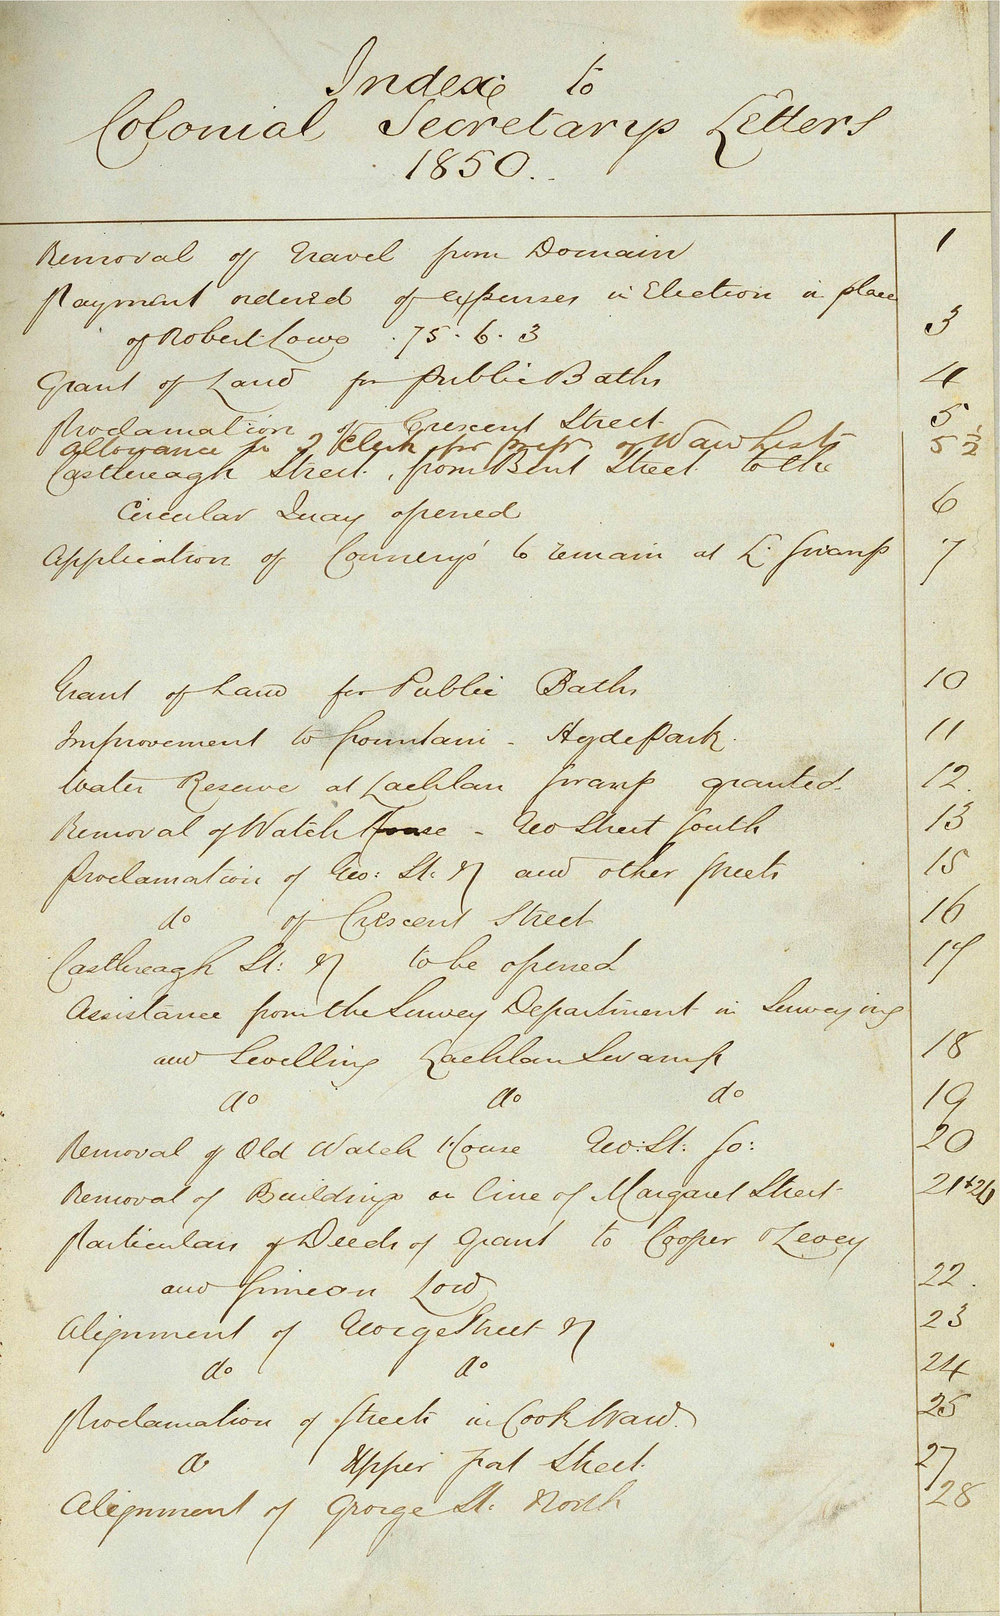 Index to
Colonial Secretarys Letters
1850.
Removal of Gravel from Domain 1
Payment ordered of expenses in Election in place
of Robert Lowe 75.6.3 3
Grant of Land for Public Baths 4
Proclamation of Crescent Street 5
Allowance to 2 Clerk for prepn. of Ward Lists 5 1/2
Castlereagh Street from Bent Street to the
Circular Quay opened 6
Application of Connerys' to remain at L. Swamp 7
Grant of Land for Public Baths 10
Improvement to fountain - Hyde Park. 11
Water Reserve at Lachlan Swamp granted. 12.
Removal of Watch House - Geo Street South 13
Proclamation of Geo: St: N and other Streets 15
do of Crescent Street 16
Castlereagh St: N to be opened 17
Assistance from the Survey Department in Surveying
and Levelling Lachlan Swamp 18
do do do 19
Removal of Old Watch House Geo: St: So: 20
Removal of Buildings on line of Margaret Street 21+26
Particulars of Deeds of Grant to Cooper & Levey
and Simeon Lord 22.
Alignment of George Street N 23
do do 24
Proclamation of Streets in Cook Ward. 25
do Upper Fort Street 27
Alignment of George St. North 28